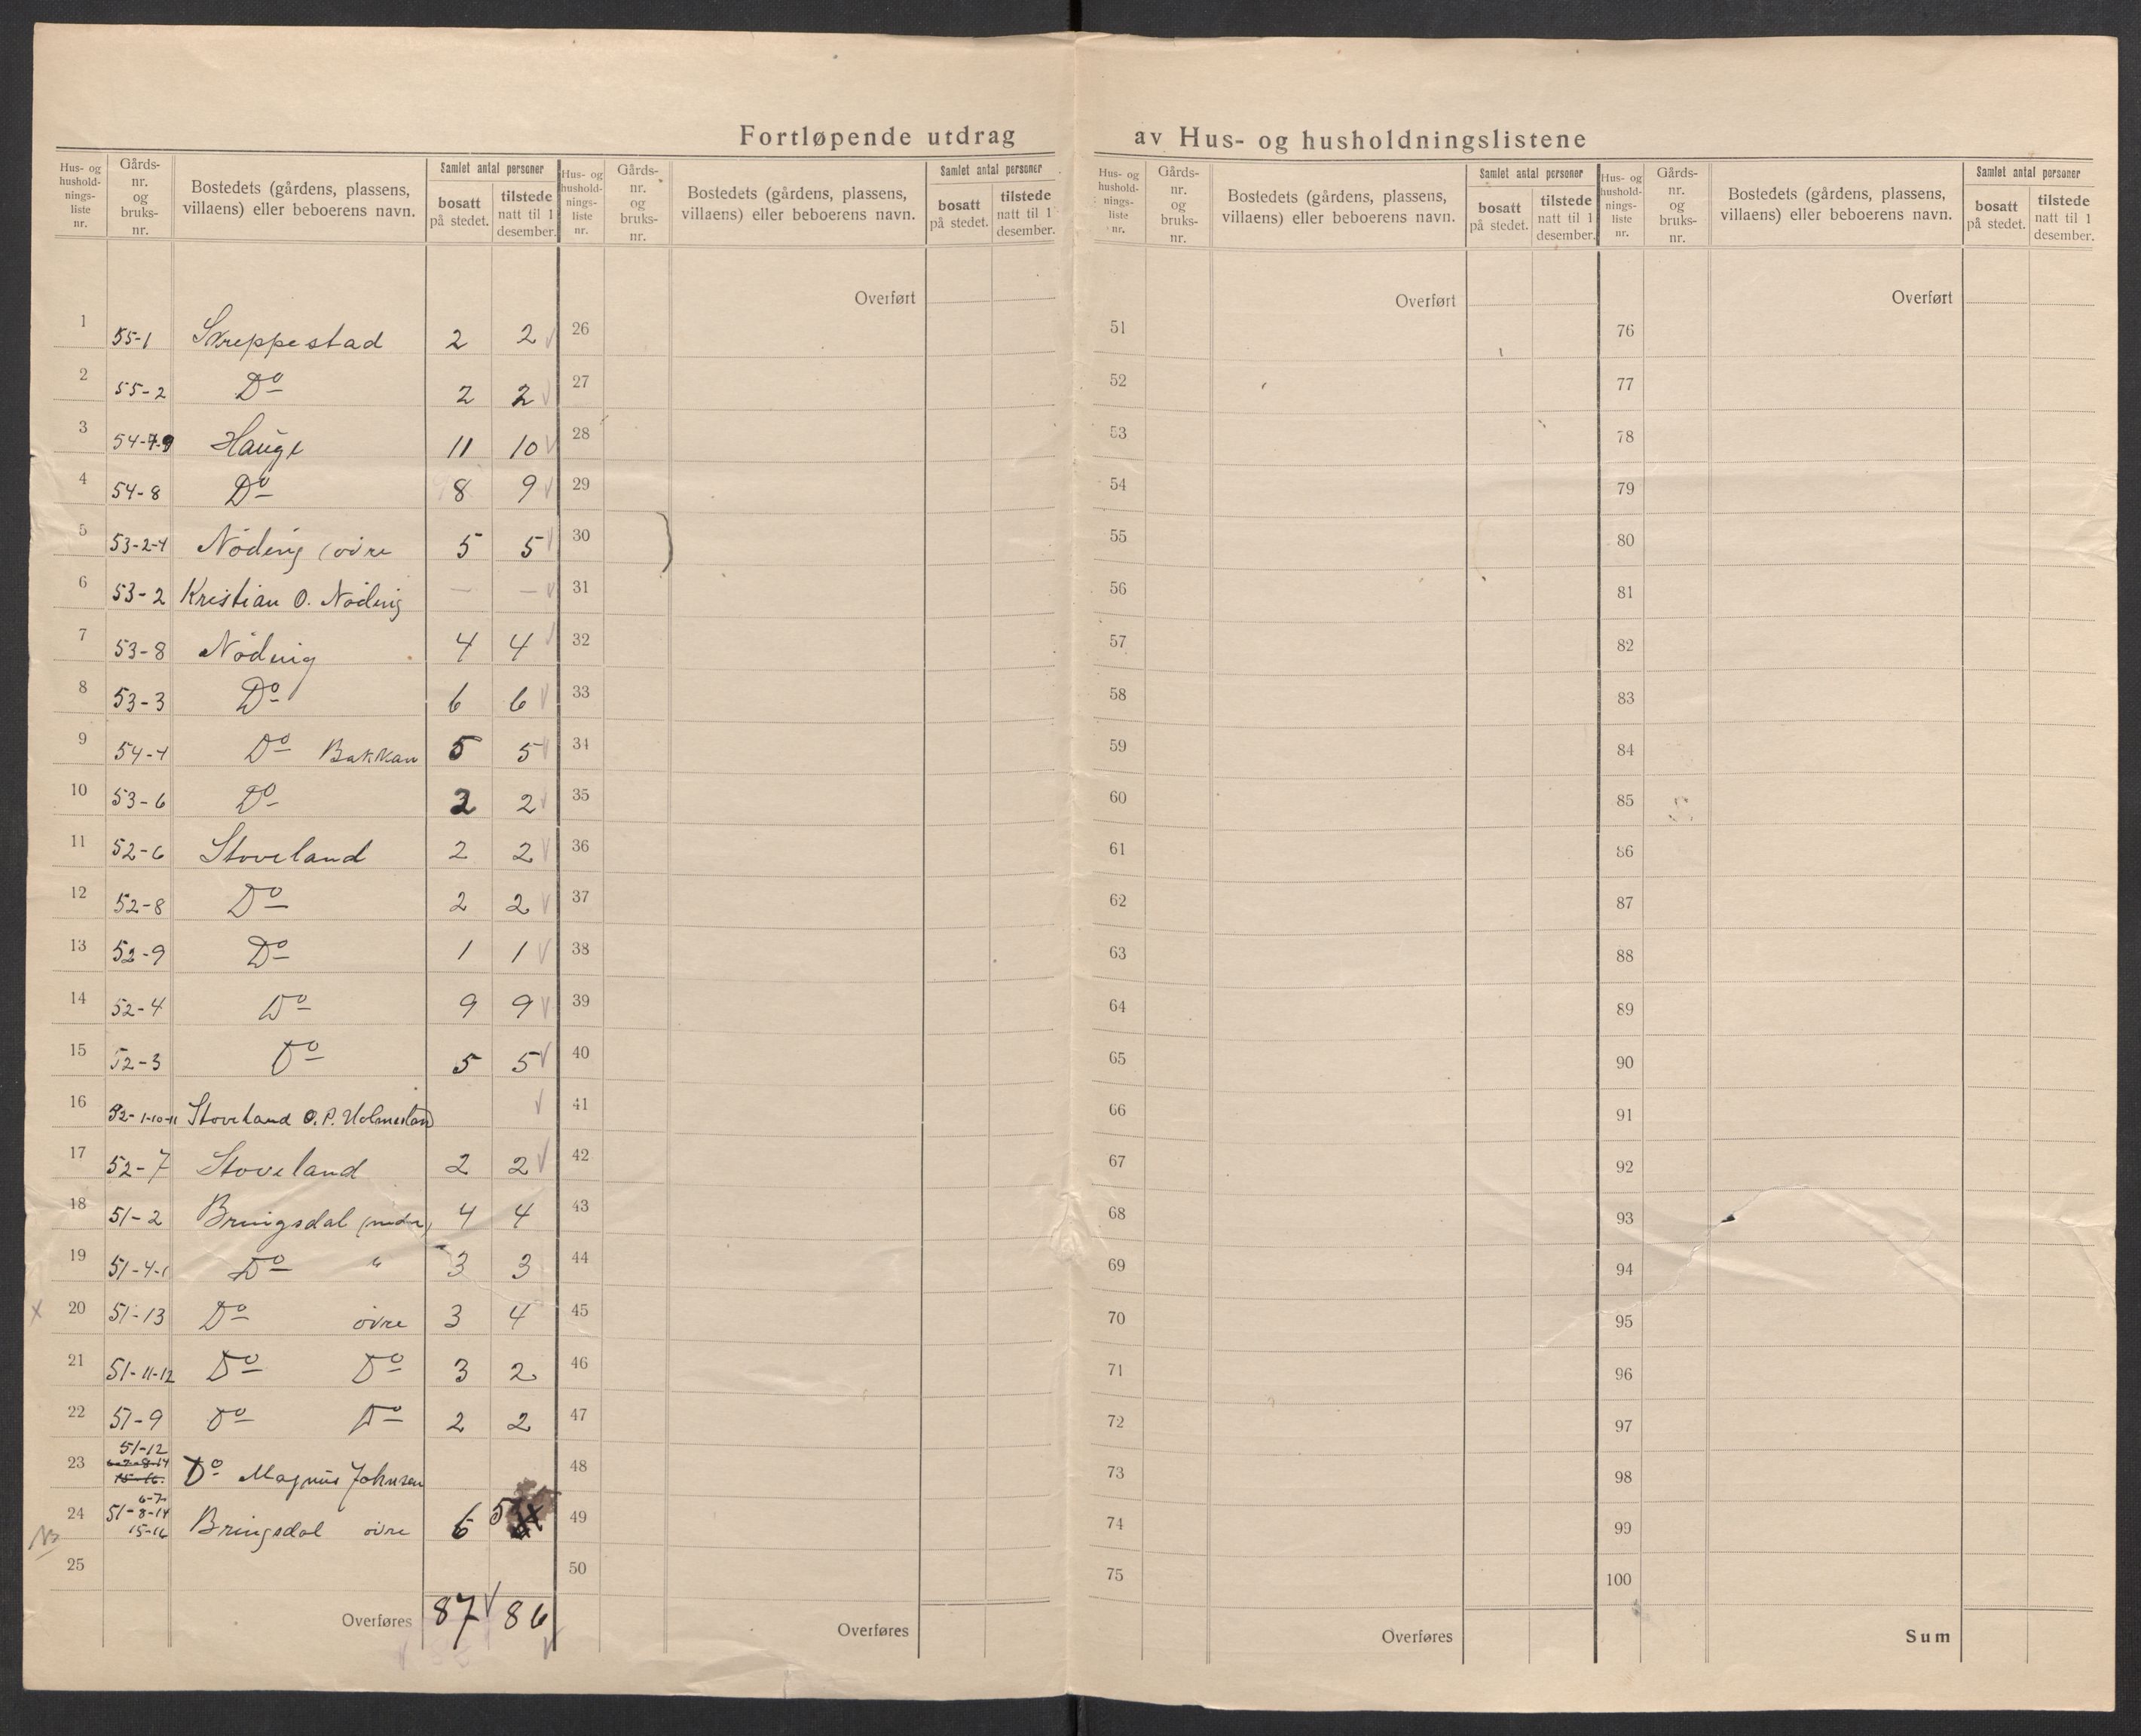 Fortløpende utdrag av Hus- og husholdningslistene
Hus- og hushold- nings- liste nr. | Gårds- nr. og bruks- nr. | Bostedets (gårdens, plassens, villaens) eller beboerens navn. | Samlet antal personer | bosatt på stedet. | tilstede natt til 1 desember.
Hus- og hushold- nings- liste nr. | Gårds- nr. og bruks- nr. | Bostedets (gårdens, plassens, villaens) eller beboerens navn. | Samlet antal personer | bosatt på stedet. | tilstede natt til 1 desember.
Hus- og hushold- nings- liste nr. | Gårds- nr. og bruks- nr. | Bostedets (gårdens, plassens, villaens) eller beboerens navn. | Samlet antal personer | bosatt på stedet. | tilstede natt til 1 desember.
Hus- og hushold- nings- liste nr. | Gårds- nr. og bruks- nr. | Bostedets (gårdens, plassens, villaens) eller beboerens navn. | Samlet antal personer | bosatt på stedet. | tilstede natt til 1 desember.
1 55-1 Skreppestad 2 2
2 55-2 Do 2 2
3 54-7-9 Hauge 11 10
4 54-8 Do 8 9
5 53-2-4 Nöding (övre 5 5
6 53-2 Kristian O. Nöding — —
7 53-8 Nöding 4 4
8 53-3 Do 6 6
9 54-4 Do Bakkan 5 5
10 53-6 Do 2 2
11 52-6 Stoveland 2 2
12 52-8 Do 2 2
13 52-9 Do 1 1
14 52-4 Do 9 9
15 52-3 Do 5 5
16 52-1-10-11 Stoveland O. P. Holmesland
17 52-7 Stoveland 2 2
18 51-2 Bringsdal (nedre) 4 4
19 51-4-1 Do " 3 3
20 51-13 Do övre 3 4
21 51-11-12 Do Do 3 2
22 51-9 Do Do 2 2
23 51-12 6-7-8-14 15-16. Do Magnus Johnsen
24 51-6-7-8-14 15-16 Bringsdal övre 6 5
25
Overføres 87 86
Overført
26
27
28
29
30
31
32
33
34
35
36
37
38
39
40
41
42
43
44
45
46
47
48
49
50
Overføres
Overført
51
52
53
54
55
56
57
58
59
60
61
62
63
64
65
66
67
68
69
70
71
72
73
74
75
Overføres
Overført
76
77
78
79
80
81
82
83
84
85
86
87
88
89
90
91
92
93
94
95
96
97
98
99
100
Sum